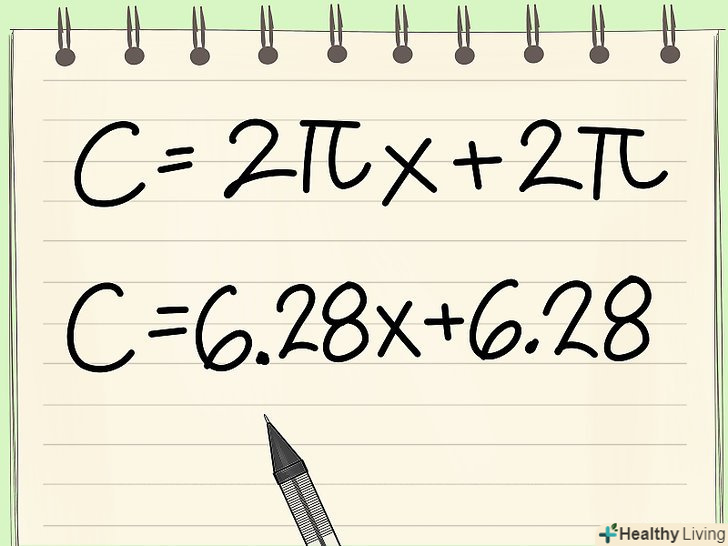 C=2πx+2π
C=6.28x+6.28
Healthy Living